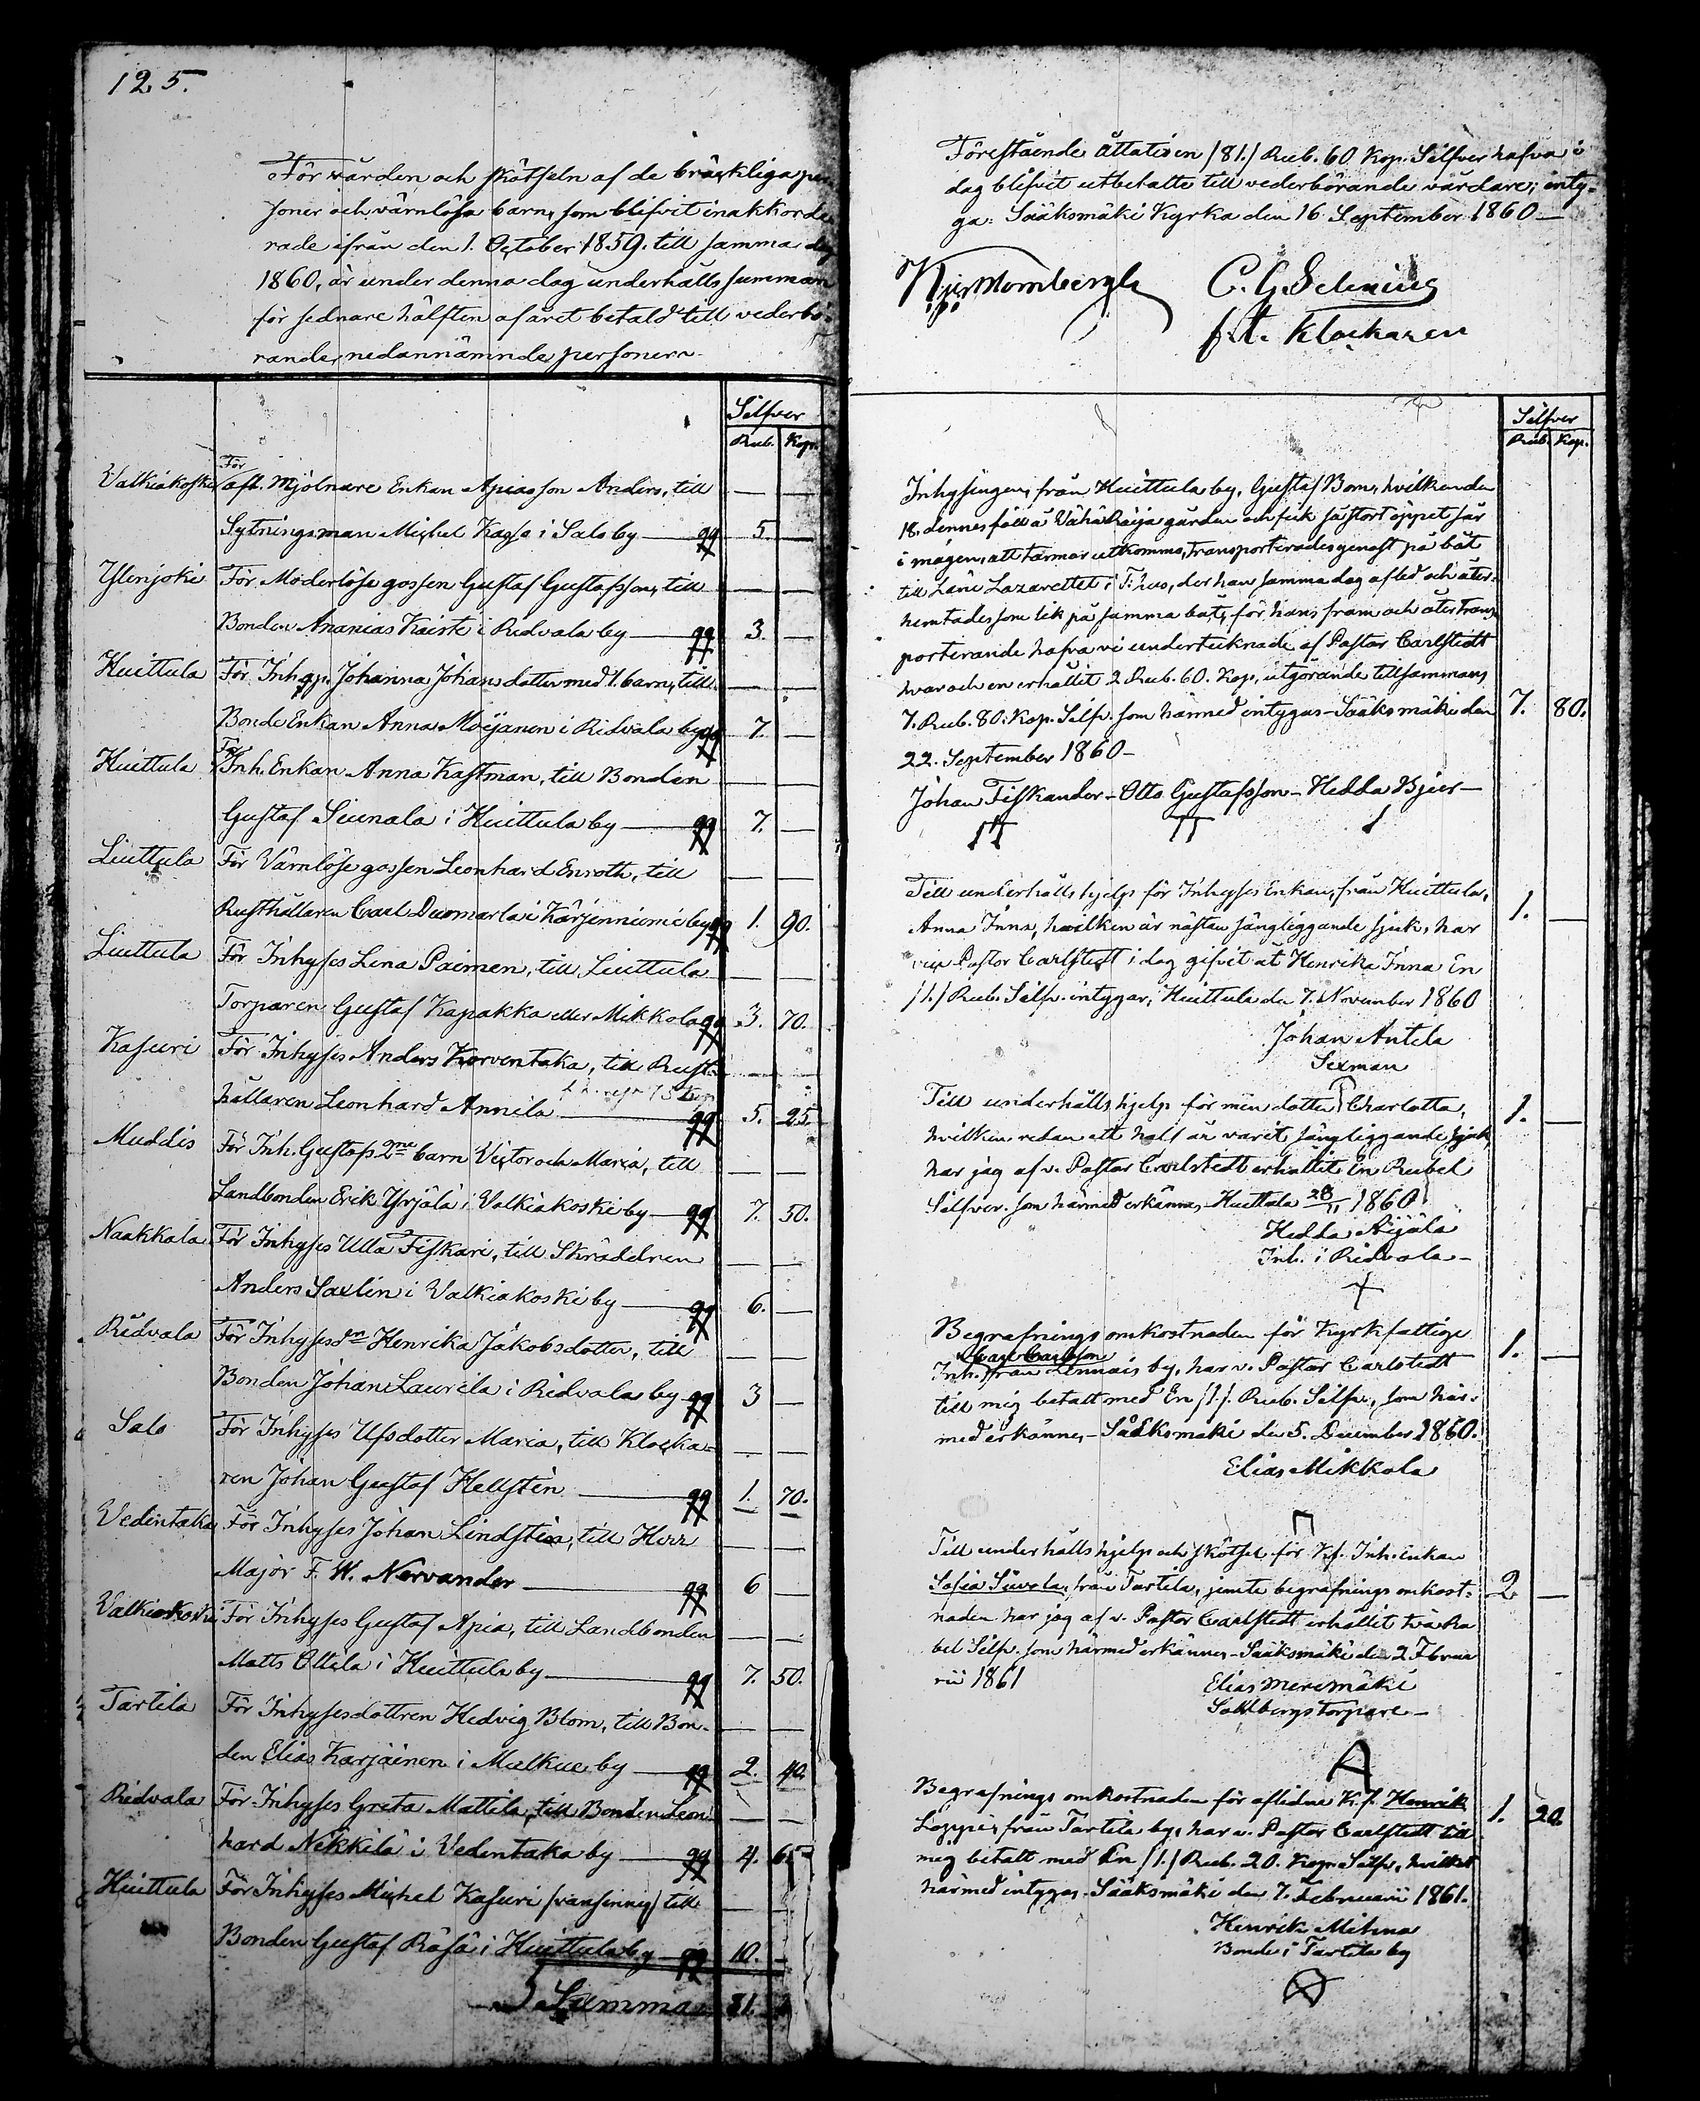 125.
För vården och skötseln af de bräckliga per-
soner och värnlösa barn, som blifvit inakkorde-
rade ifrån den 1. October 1859. till samma dag
1860, är under denna dag underhålls summan
för sednare hälften af året betald till vederbö-
rande, nedannämnde personer.
Silfver
Rub. Kop.
Valkiakoski För afl. Mjölnare Enkan Apiasson Anders, till — —
Sytningsman Michel Kassa i Salo by — 5 —
Ylenjoki För Moderlöse gossen Gustaf Gustafsson, till — —
Bonden Ananias Kaiste i Ridvala by — 3. —
Huittula För Inhys. Johanna Johansdotter med 1. barn, till — —
Bonde Enkan Anna Moijanen i Ridvala by 7. —
Huittula För Inh. Enkan Anna Kastman, till Bonden — —
Gustaf Seunala i Huittula by — 7. —
Liuttula För Värnlöse gossen Leonhard Enroth, till — —
Rusthållaren Carl Duomarla i Kärjenniemi by 1. 90.
Liuttula För Inhyses Lena Paimen, till Liuttula — —
Torparen Gustaf Kapakka eller Mikkola 3. 70.
Kasuri För Inhyses Anders Korventaka, till Rust- — —
hållaren Leonhard Annila — 5. 25
Muddis För Inh. Gustafs 2ne barn Victor och Maria, till — —
Landbonden Erik Yrjälä i Valkiakoski by — 7. 50.
Naakkala För Inhyses Ulla Fiskari, till Skräddren — —
Anders Saxlin i Valkiakoski by — 6. —
Ridvala För Inhyses dn Henrika Jakobsdotter, till — —
Bonden Johan Laurila i Ridvala by — 3 —
Salo För Inhyses Ufsdotter Maria, till Klocka- — —
ren Johan Gustaf Hellstén — 1. 70.
Vedentaka För Inhyses Johan Lindstén, till Herr — —
Major F. W. Nervander — 6 —
Valkiakoski För Inhyses Gustaf Apia, till Landbonden — —
Matts Ottila i Huittula by — 7. 50.
Tartila För Inhysesdottren Hedvig Blom, till Bon- — —
den Elias Karjainen i Mälkue by — 2. 40.
Ridvala För Inhyses Greta Mattila, till Bonden Leon- — —
hard Nikkilä i Vedentaka by — 4. 65
Huittula För Inhyses Michel Kasuri /vansinnig/ till — —
Bonden Gustaf Räfsä i Huittula by 10. —
Summa 81.
Förestående åttatioen /81./ Rub. 60 Kop. Silfver hafva i
dag blifvit utbetalte till vederbörande vårdare; inty-
ga: Sääksmäki Kyrka den 16 September 1860 —
C. G. Selenius
f.d. Klockaren
Silfver
Rub. Kop.
Inhysingen, från Huittula by, Gustaf Bom, hvilken den
18. dennes föll å Vähä Räijä gården och fick så stort öppet sår
i magen, att tarmar utkommo, transporterades genast på båt
till Läns Lazarettet i T:hus, der han samma dag afled och åter-
hemtades som lik på samma båt; för hans fram och åter trans-
porterande hafva vi undertecknade af Pastor Carlstedt
hvar och en erhållit 2 Rub. 60. Kop, utgörande tillsammans
7. Rub. 80. Kop. Silfv. som härmed intygas — Sääksmäki den 7. 80.
22. September 1860 —
Johan Fiskander — Otto Gustafsson — Hedda Bjur —
Till underhålls hjelp för Inhyses Enkan, från Huittula,
Anna Inna, hvilken är nästan sängliggande sjuk, har 1. —
vice Pastor Carlstedt i dag gifvit åt Henrika Inna En
/1./ Rub. Silfv. intygar, Huittula den 7. November 1860
Johan Antela
Sexman
Till underhålls hjelp för min dotter Charlotta, 1. —
hvilken redan ett half år varit sängliggande sjuk,
har jag af v. Pastor Carlstedt erhållit En Rubel
Silfver. som härmed erkännes — Huittula 28/11 1860
Hedda Äijälä
Inh. i Ridvala —
Begrafnings omkostnaden för Kyrkfattige
Carl Carlsson 1. —
Inh. från Annais by, har v. Pastor Carlstedt
till mig betalt med En /1./. Rub. Silfv., som här-
med erkännes — Sääksmäki den 5. December 1860.
Elias Mikkola
Till underhålls hjelp och skötsel för K.f. Inh. enkan
Sofia Siivola, från Tartila, jemte begrafnings omkost- 2 —
naden har jag af v. Pastor Carlstedt erhållit två Ru
bel Silfv. som härmed erkännes — Sääksmäki den 2 Februa
rii 1861
Elias Merimäki
Sahlbergs torpare —
A
Begrafnings omkostnaden för aflidne K.f. Henrik
Loppi, från Tartila by, har v. Pastor Carlstedt till 1. 20.
mig betalt med En /1./ Rub. 20. Kop. Silfv., hvilket
härmed intygas. Sääksmäki den 7. Februarii 1861.
Henrik Mitina
Bonde i Tartila by